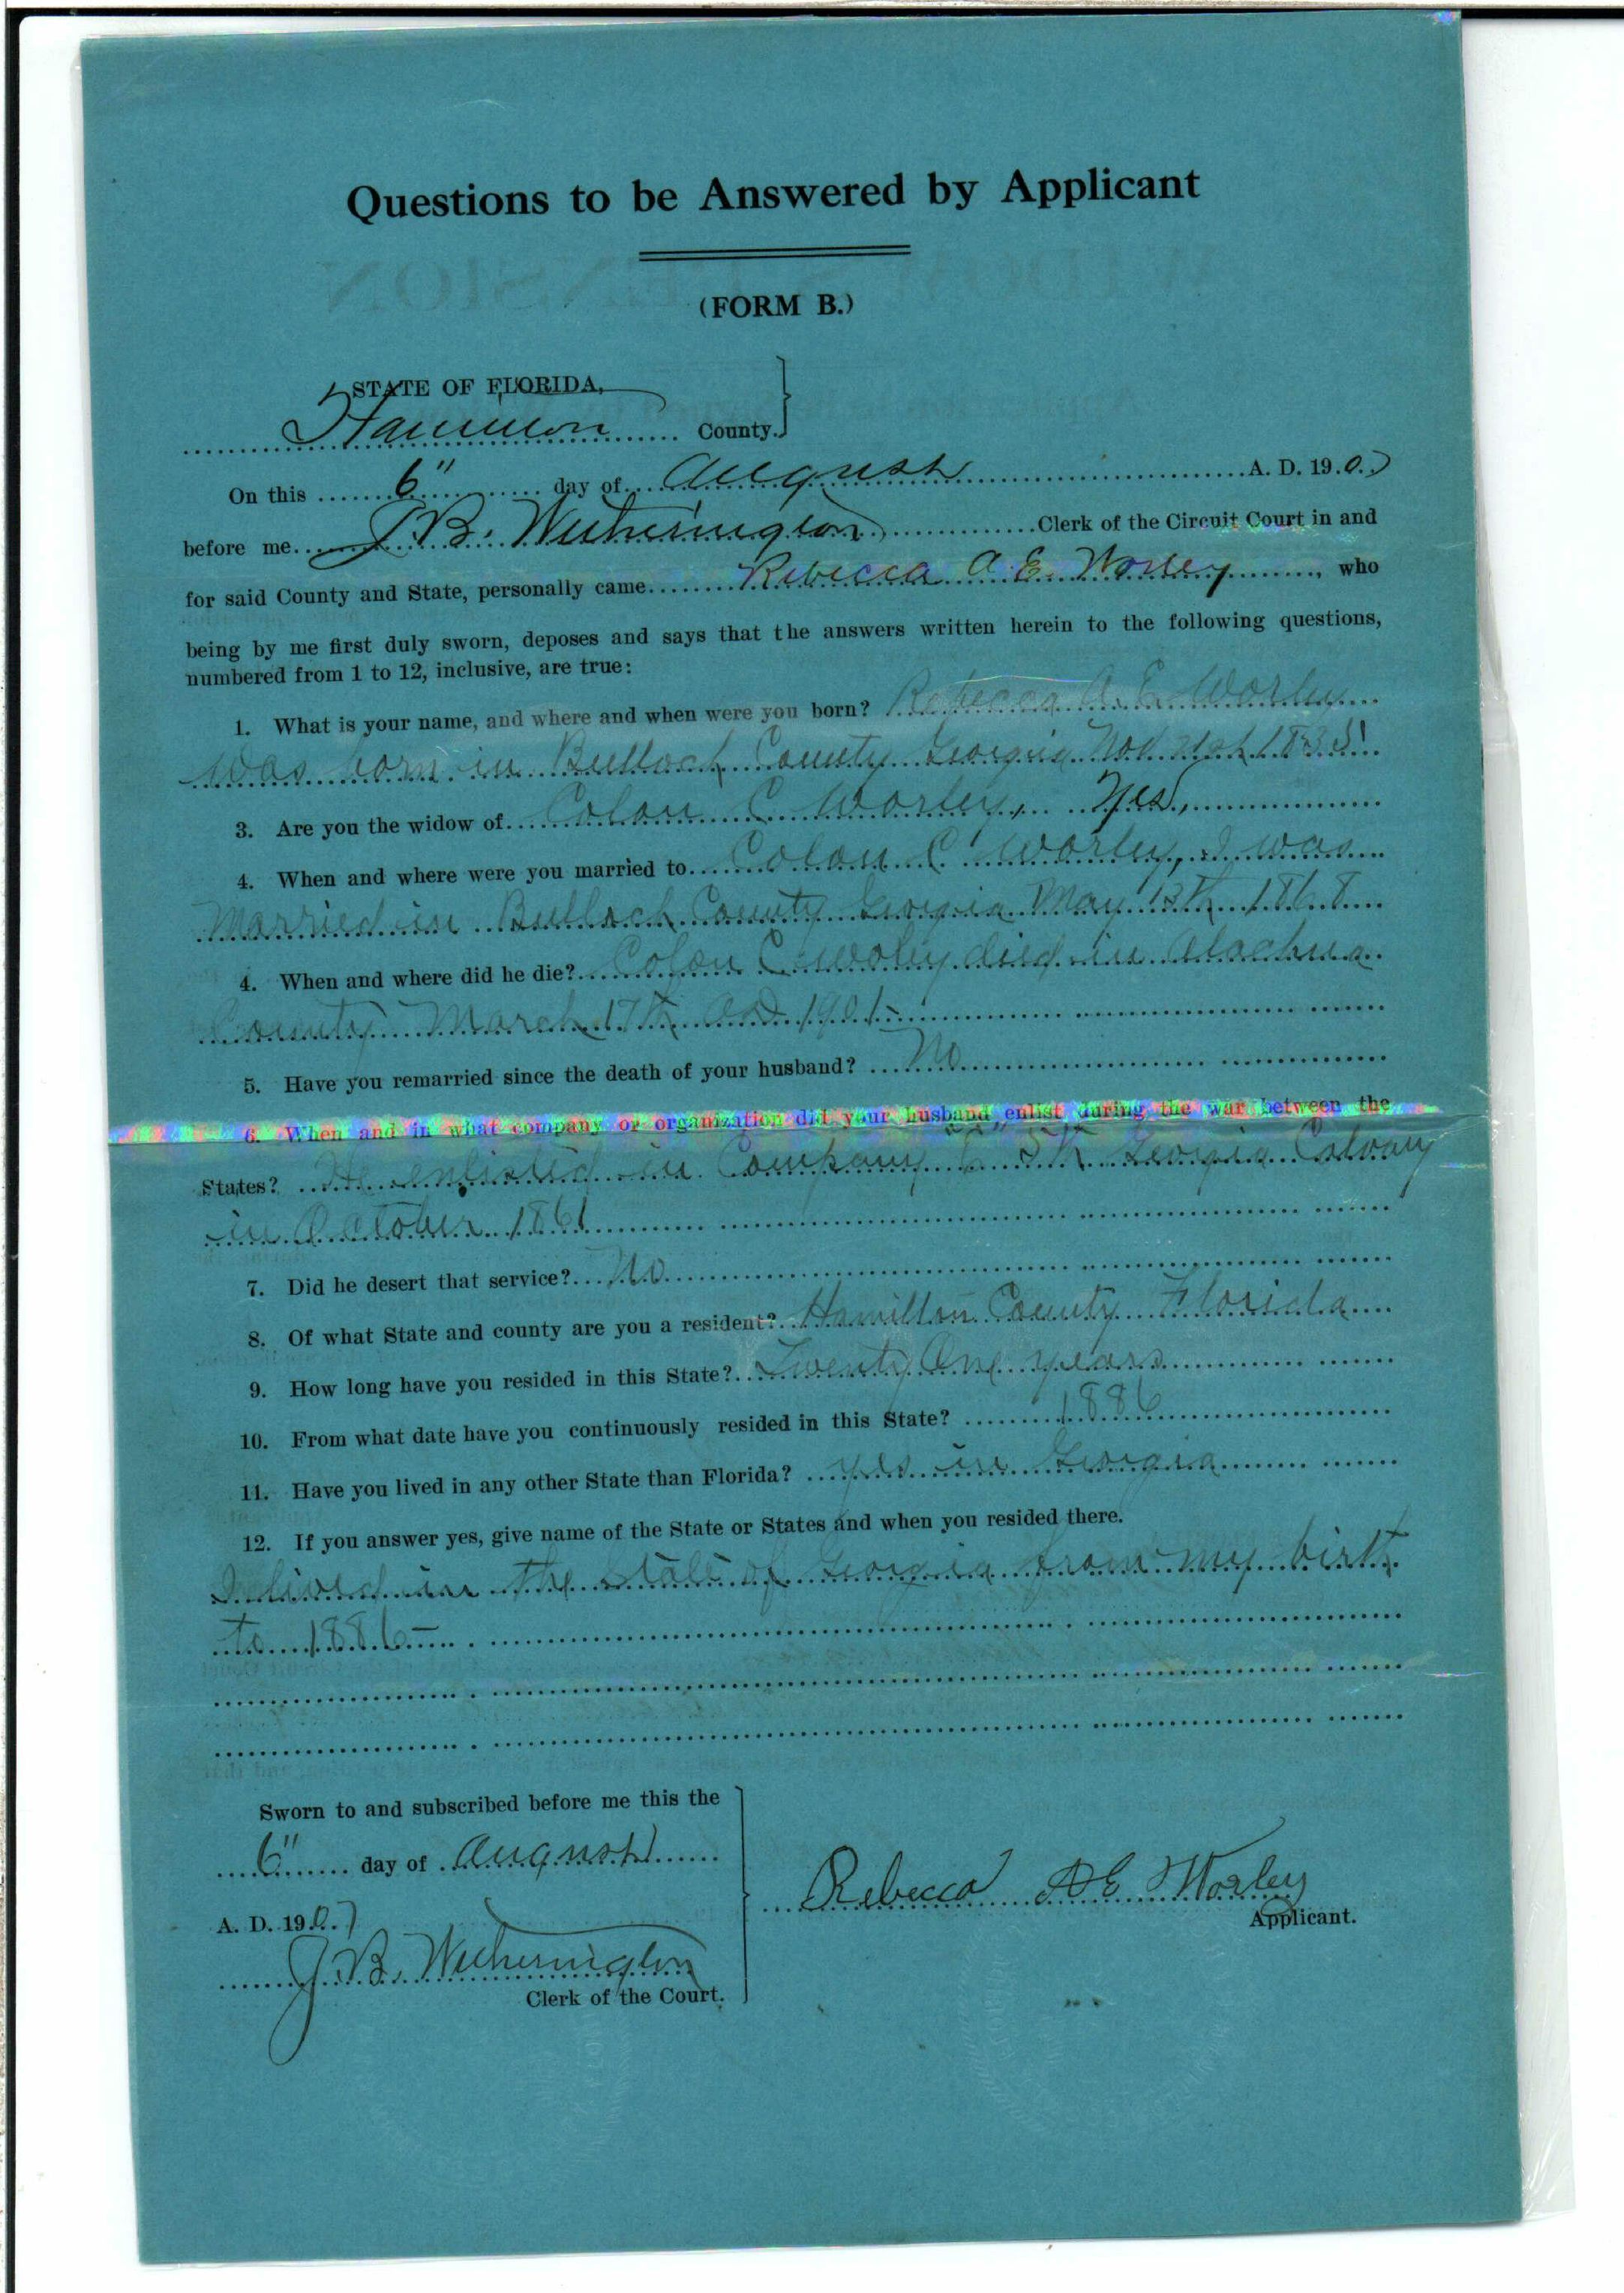 Questions to be Answered by Applicant
(FORM B.)
STATE OF FLORIDA,
Hamilton County.
On this 6" day of August A. D. 1907
before me J.B. Witherington Clerk of the Circuit Court in and
for said County and State, personally came Rebecca A. E. Worley, who
being by me first duly sworn, deposes and says that the answers written herein to the following questions,
numbered from 1 to 12, inclusive, are true:
1. What is your name, and where and when were you born? Rebecca A. E. Worley
Was born in Bulloch County Georgia Nov 21st
3. Are you the widow of Colon C Worley, Yes,
4. When and where were you married to Colon C Worley, I was
Married in Bulloch County Georgia May 13th 1868
4. When and where did he die? Colon C woley died in Alachua
County March 17th AD 1901-
5. Have you remarried since the death of your husband? No
6. When and in what company or organization did your husband enlist during the war between the
States? He enlisted in Company 5th Georgia Calvary
in October 1861
7. Did he desert that service? No
8. Of what State and county are you a resident? Hamilton County Florida
9. How long have you resided in this State? Twenty One years
10. From what date have you continuously resided in this State? 1886
11. Have you lived in any other State than Florida? yes in Georgia
12. If you answer yes, give name of the State or States and when you resided there.
I lived in the State of Georgia from my birth
to 1886-
Sworn to and subscribed before me this the
6" day of August
A. D. 1907
Rebecca A E Worley
Applicant.
J.B. Witherington
Clerk of the Court.